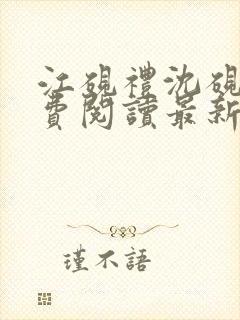 江硯禮沈硯
費閱讀最新
瑾不語